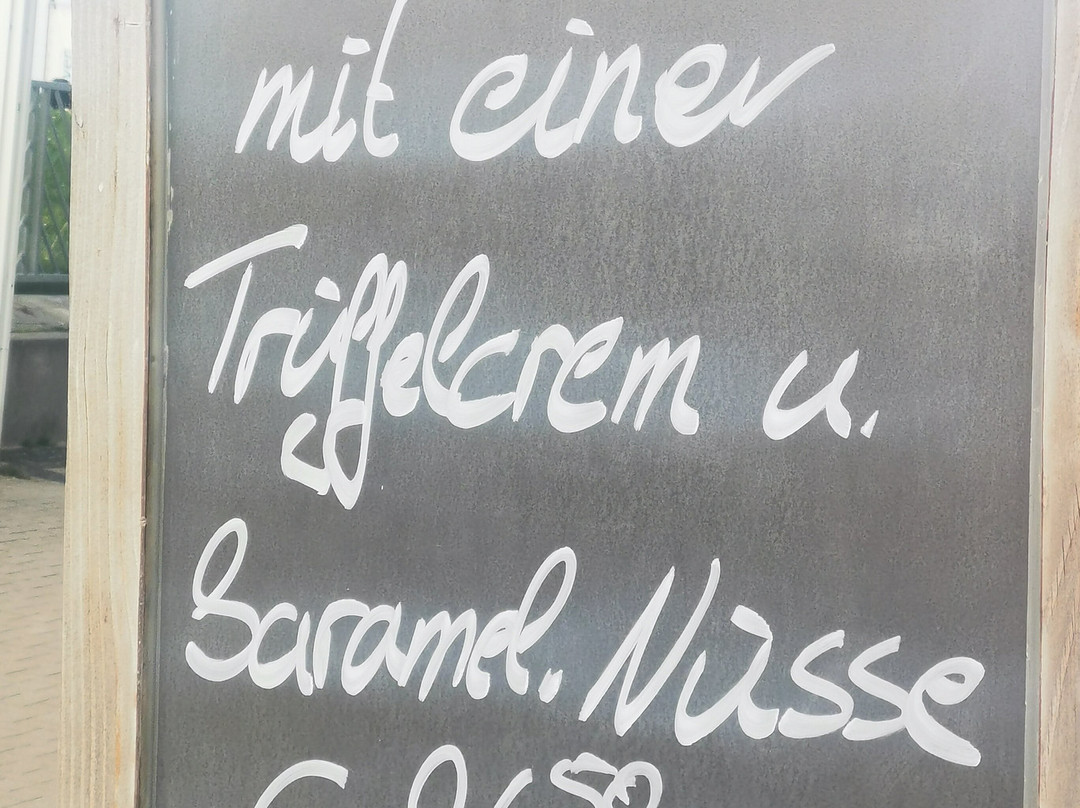 mit einer
Trüffelcrem u.
Caramel. Nüsse